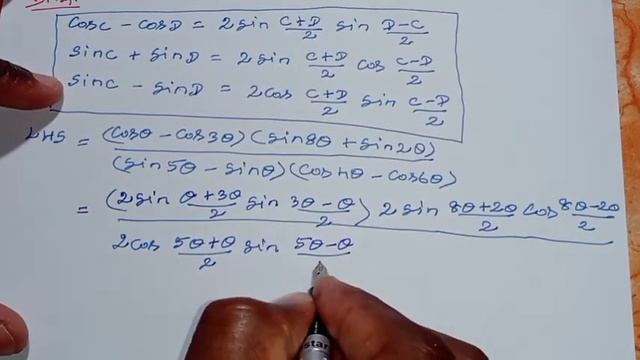 cosC - cosD = 2 sin (C+D)/2 sin (D-C)/2
sinC + sinD = 2 sin (C+D)/2 cos (C-D)/2
sinC - sinD = 2cos (C+D)/2 sin (C-D)/2
LHS = (cosθ - cos3θ)(sin8θ + sin2θ)
(sin5θ - sinθ)(cos4θ - cos6θ)
= (2sin (θ+3θ)/2 sin (3θ-θ)/2) 2 sin (8θ+2θ)/2 cos (8θ-2θ)/2
2cos (5θ+θ)/2 sin 5θ-θ
star